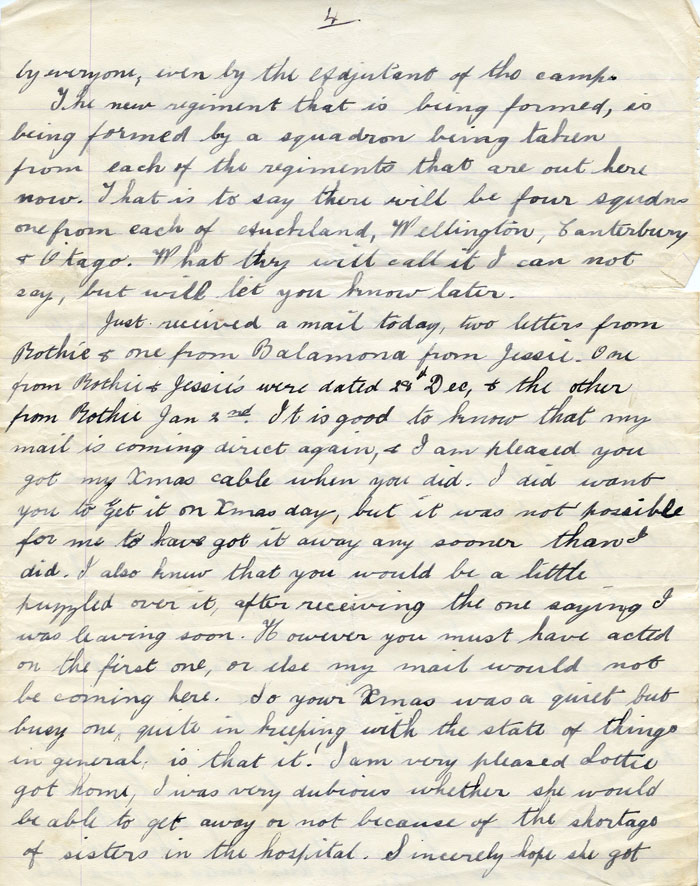 4.
by everyone, even by the Adjutant of the camp.
The new regiment that is being formed, is
being formed by a squadron being taken
from each of the regiments that are out here
now. That is to say there will be four squdns
one from each of Auckland, Wellington, Canterbury
& Otago. What they will call it I can not
say, but will let you know later.
Just received a mail today, two letters from
Rothie & one from Balamona from Jessie. One
from Rothie & Jessie's were dated 28th Dec, & the other
from Rothie Jan 2nd. It is good to know that my
mail is coming direct again, & I am pleased you
got my Xmas cable when you did. I did want
you to get it on Xmas day, but it was not possible
for me to have got it away any sooner than I
did. I also knew that you would be a little
puzzled over it, after receiving the one saying I
was leaving soon. However you must have acted
on the first one, or else my mail would not
be coming here. So your Xmas was a quiet but
busy one, quite in keeping with the state of things
in general, is that it! I am very pleased Lottie
got home, I was very dubious whether she would
be able to get away or not because of the shortage
of sisters in the hospital. I sincerely hope she got